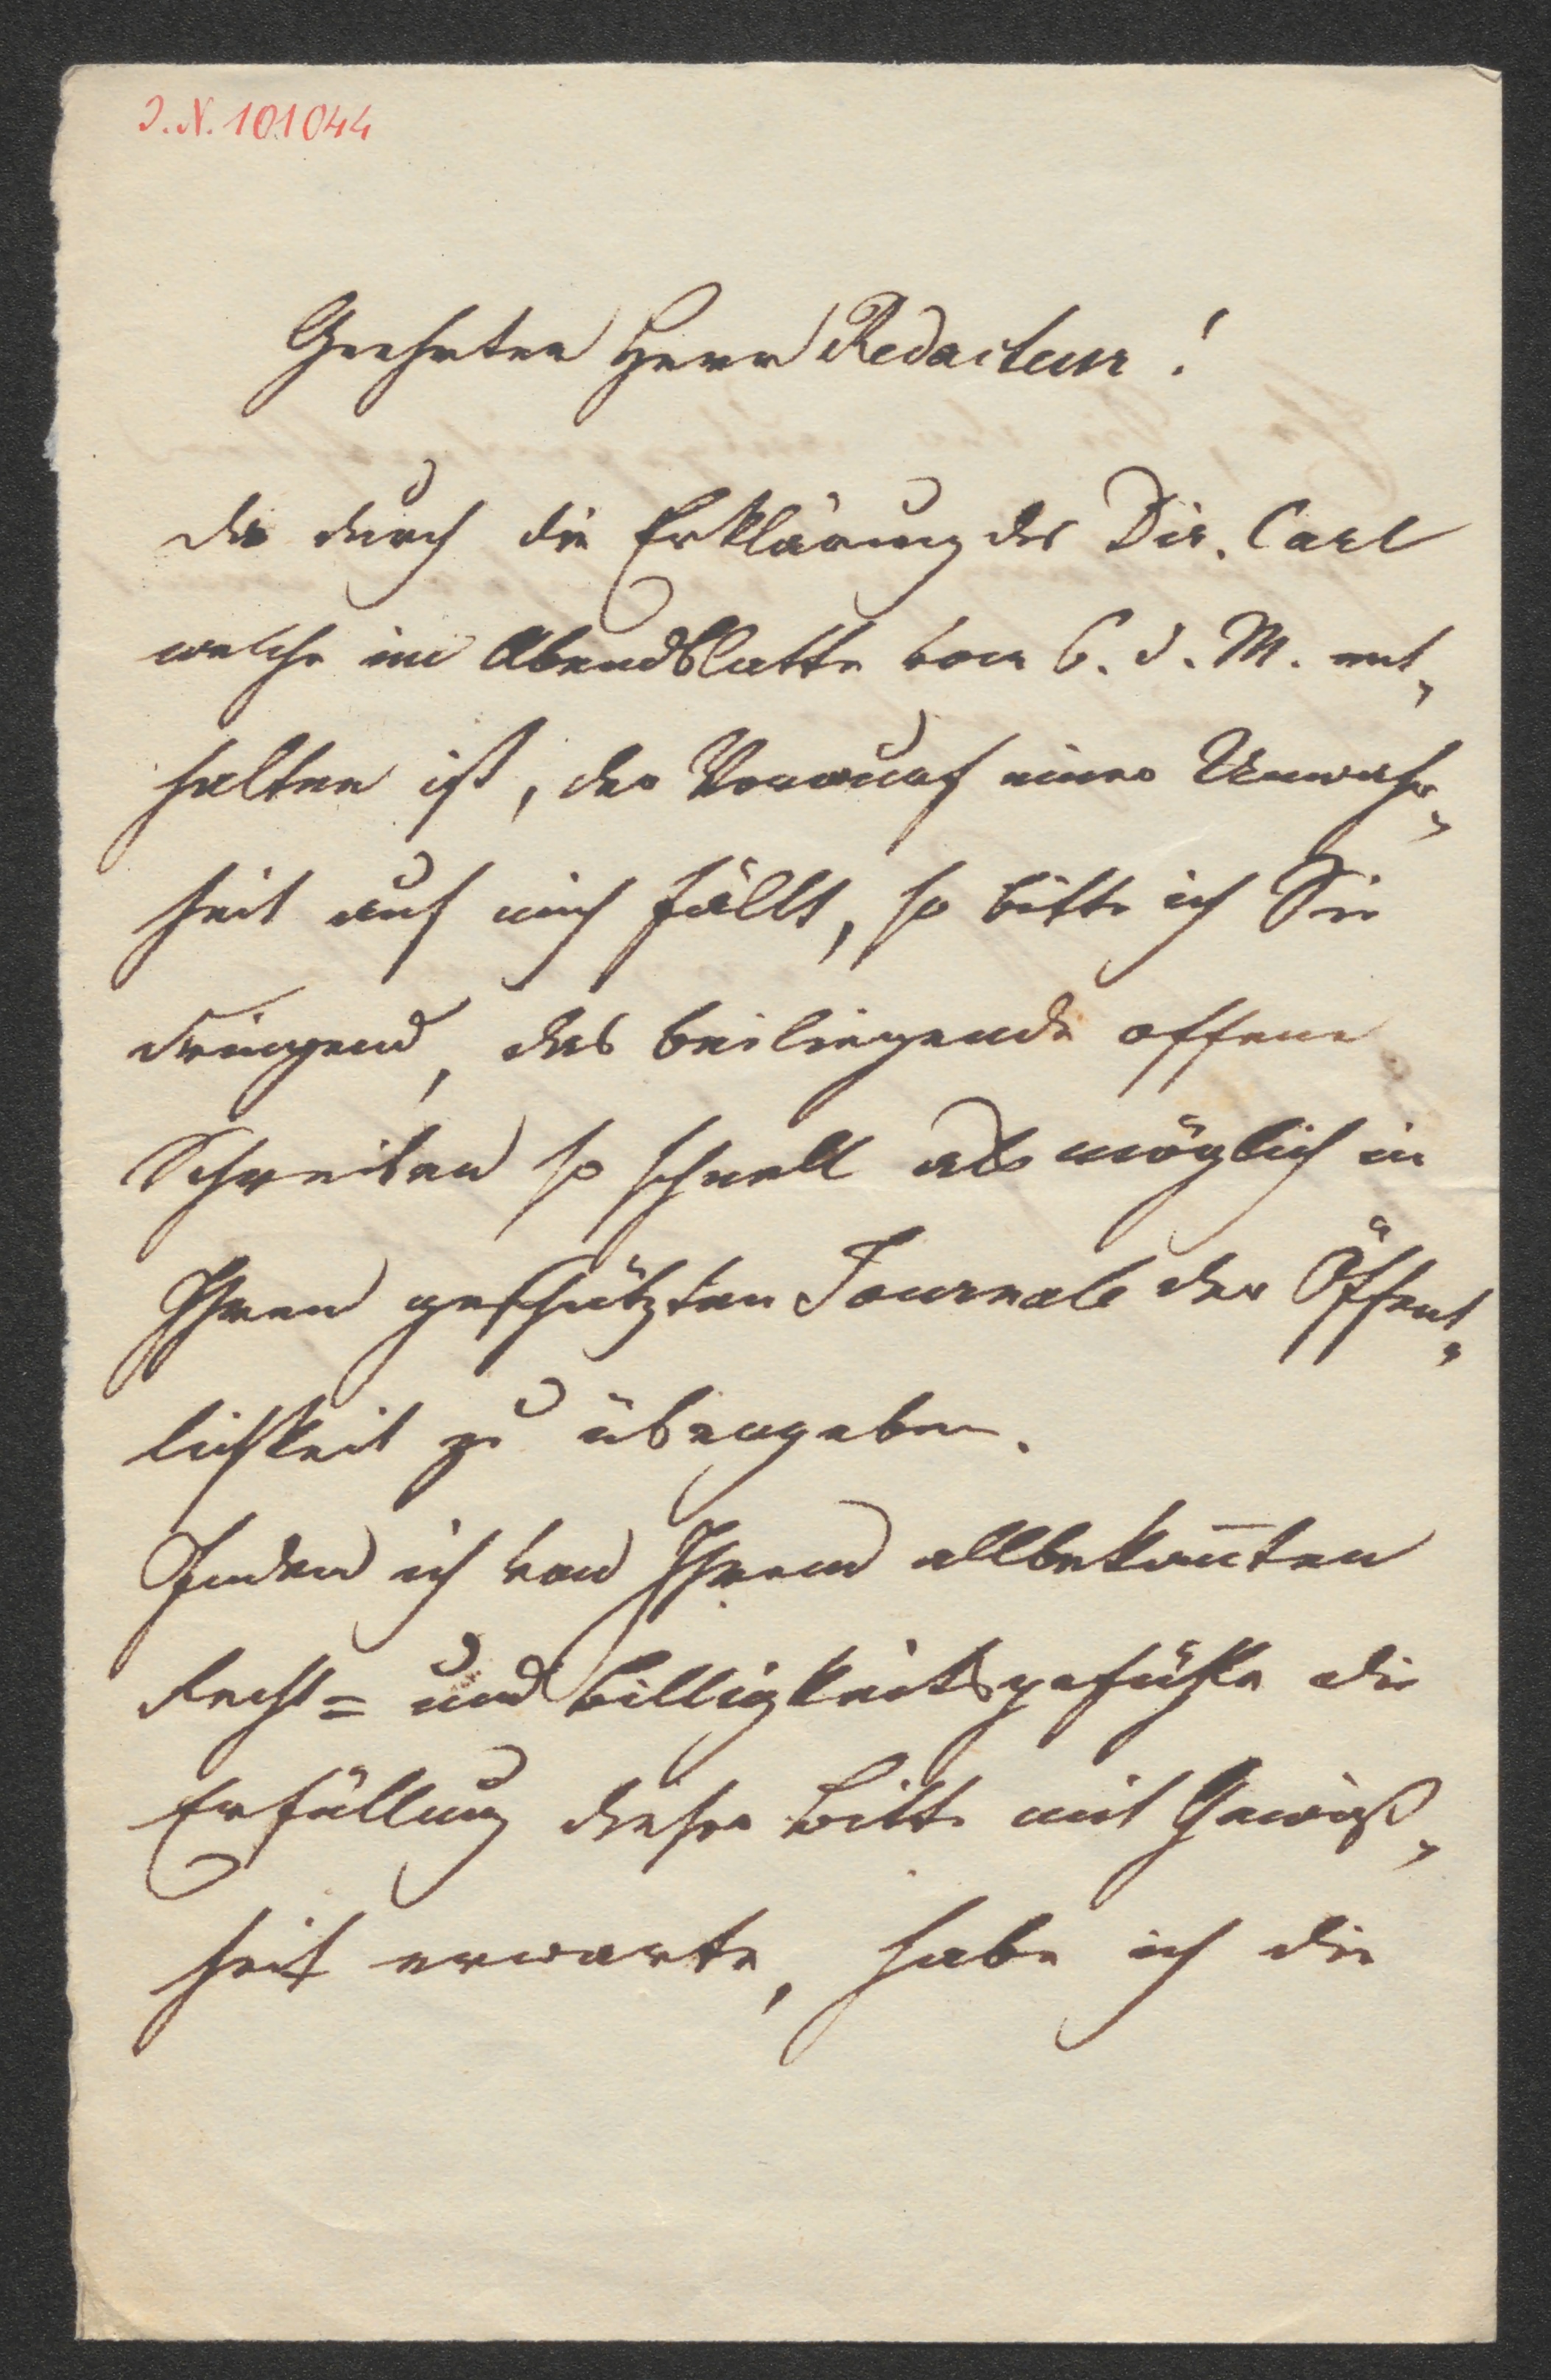 J.N. 101044
Geehrter Herr Redacteur!
Da durch die Erklärung des Dir. Carl
welche im Abendblatte vom 6. d. M. ent„
halten ist, der Vorwurf einer Unwahr„
heit auf mich fällt, so bitte ich Sie
dringend, das beiliegende offene
Schreiben so schnell als möglich in
Ihren geschätzten Journale der Öffent„
lichkeit zu übergeben.
Indem ich von Ihrem allbekan̄ten
Recht= und Billigkeitsgefühle die
Erfüllung dieser Bitte mit Gewiß„
heit erwarte, habe ich die